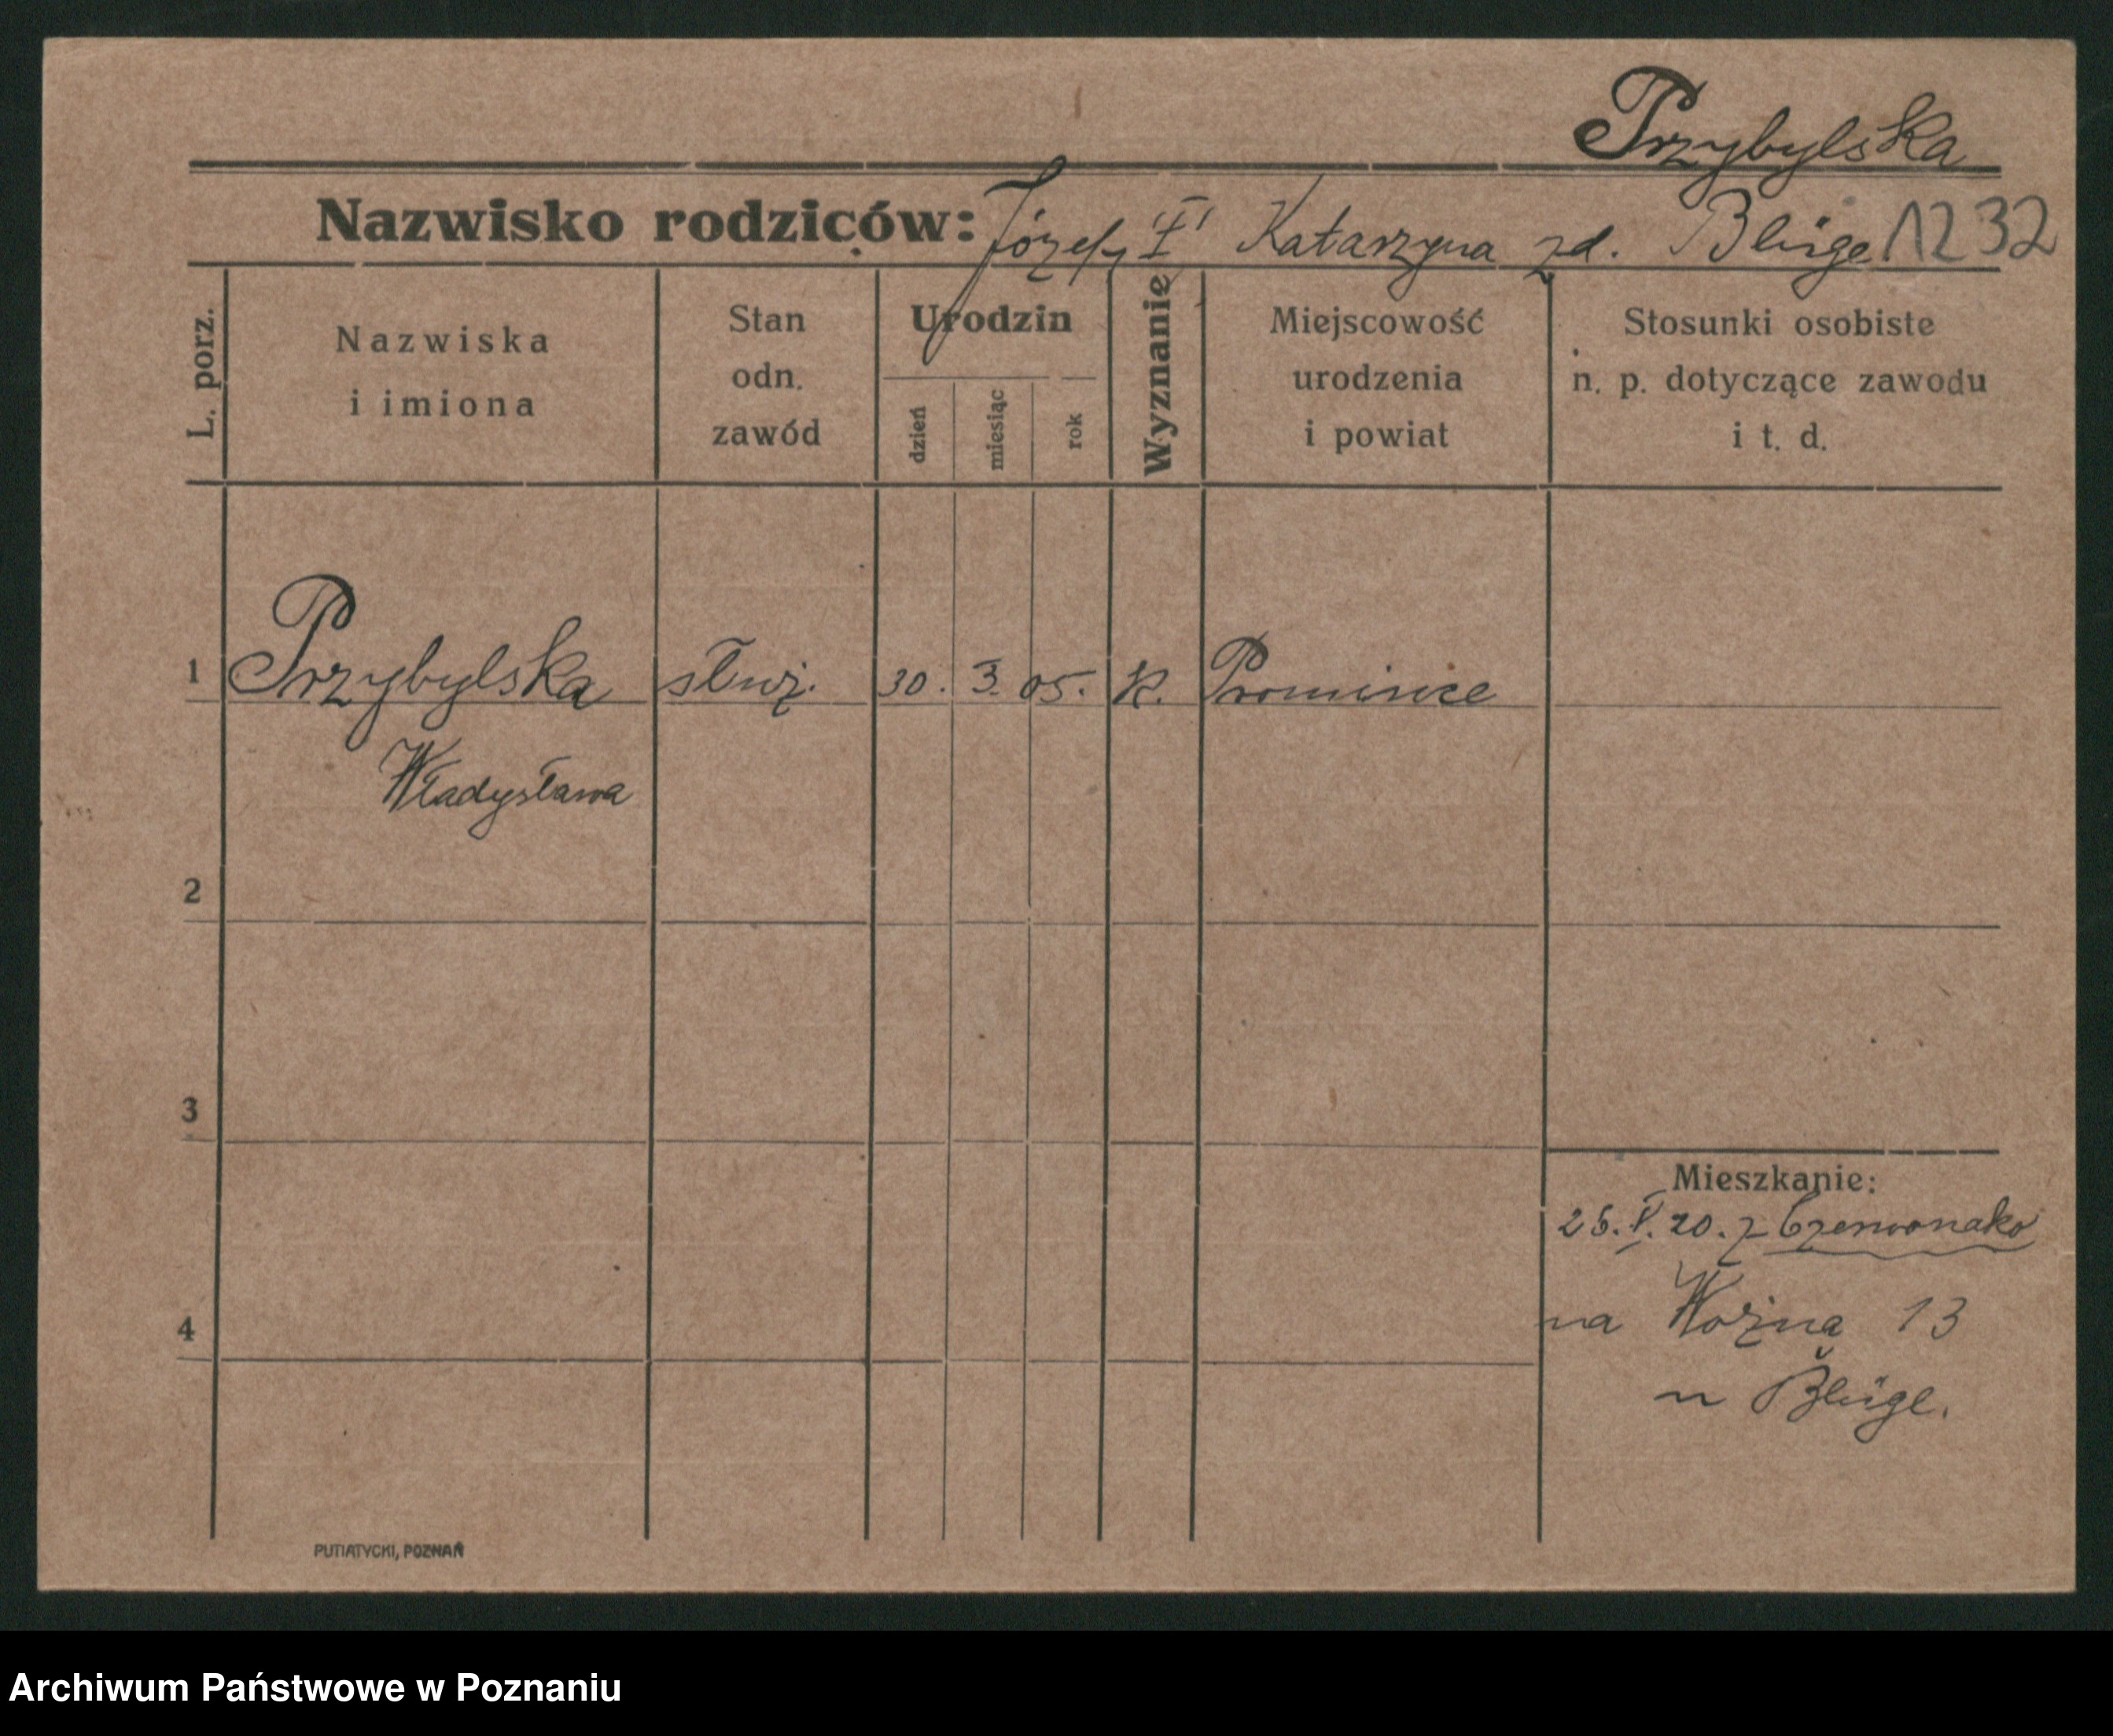 Przybylska
Nazwisko rodziców: Józef "I" Katarzyna zd. Blüge 1232
L. porz.
Nazwiska
i imiona
Stan
odn.
zawód
Urodzin
dzień
miesiąc
rok
Wyznanie
Miejscowość
urodzenia
i powiat
Stosunki osobiste
n. p. dotyczące zawodu
i t. d.
1 Przybylska służ. 30. 3. 05. k. Promienice
Władysława
2
3
4
Mieszkanie:
25. V. 20. z Czerwonako
na Woźna 13
u Blüge.
PUTIATYCKI, POZNAŃ
Archiwum Państwowe w Poznaniu